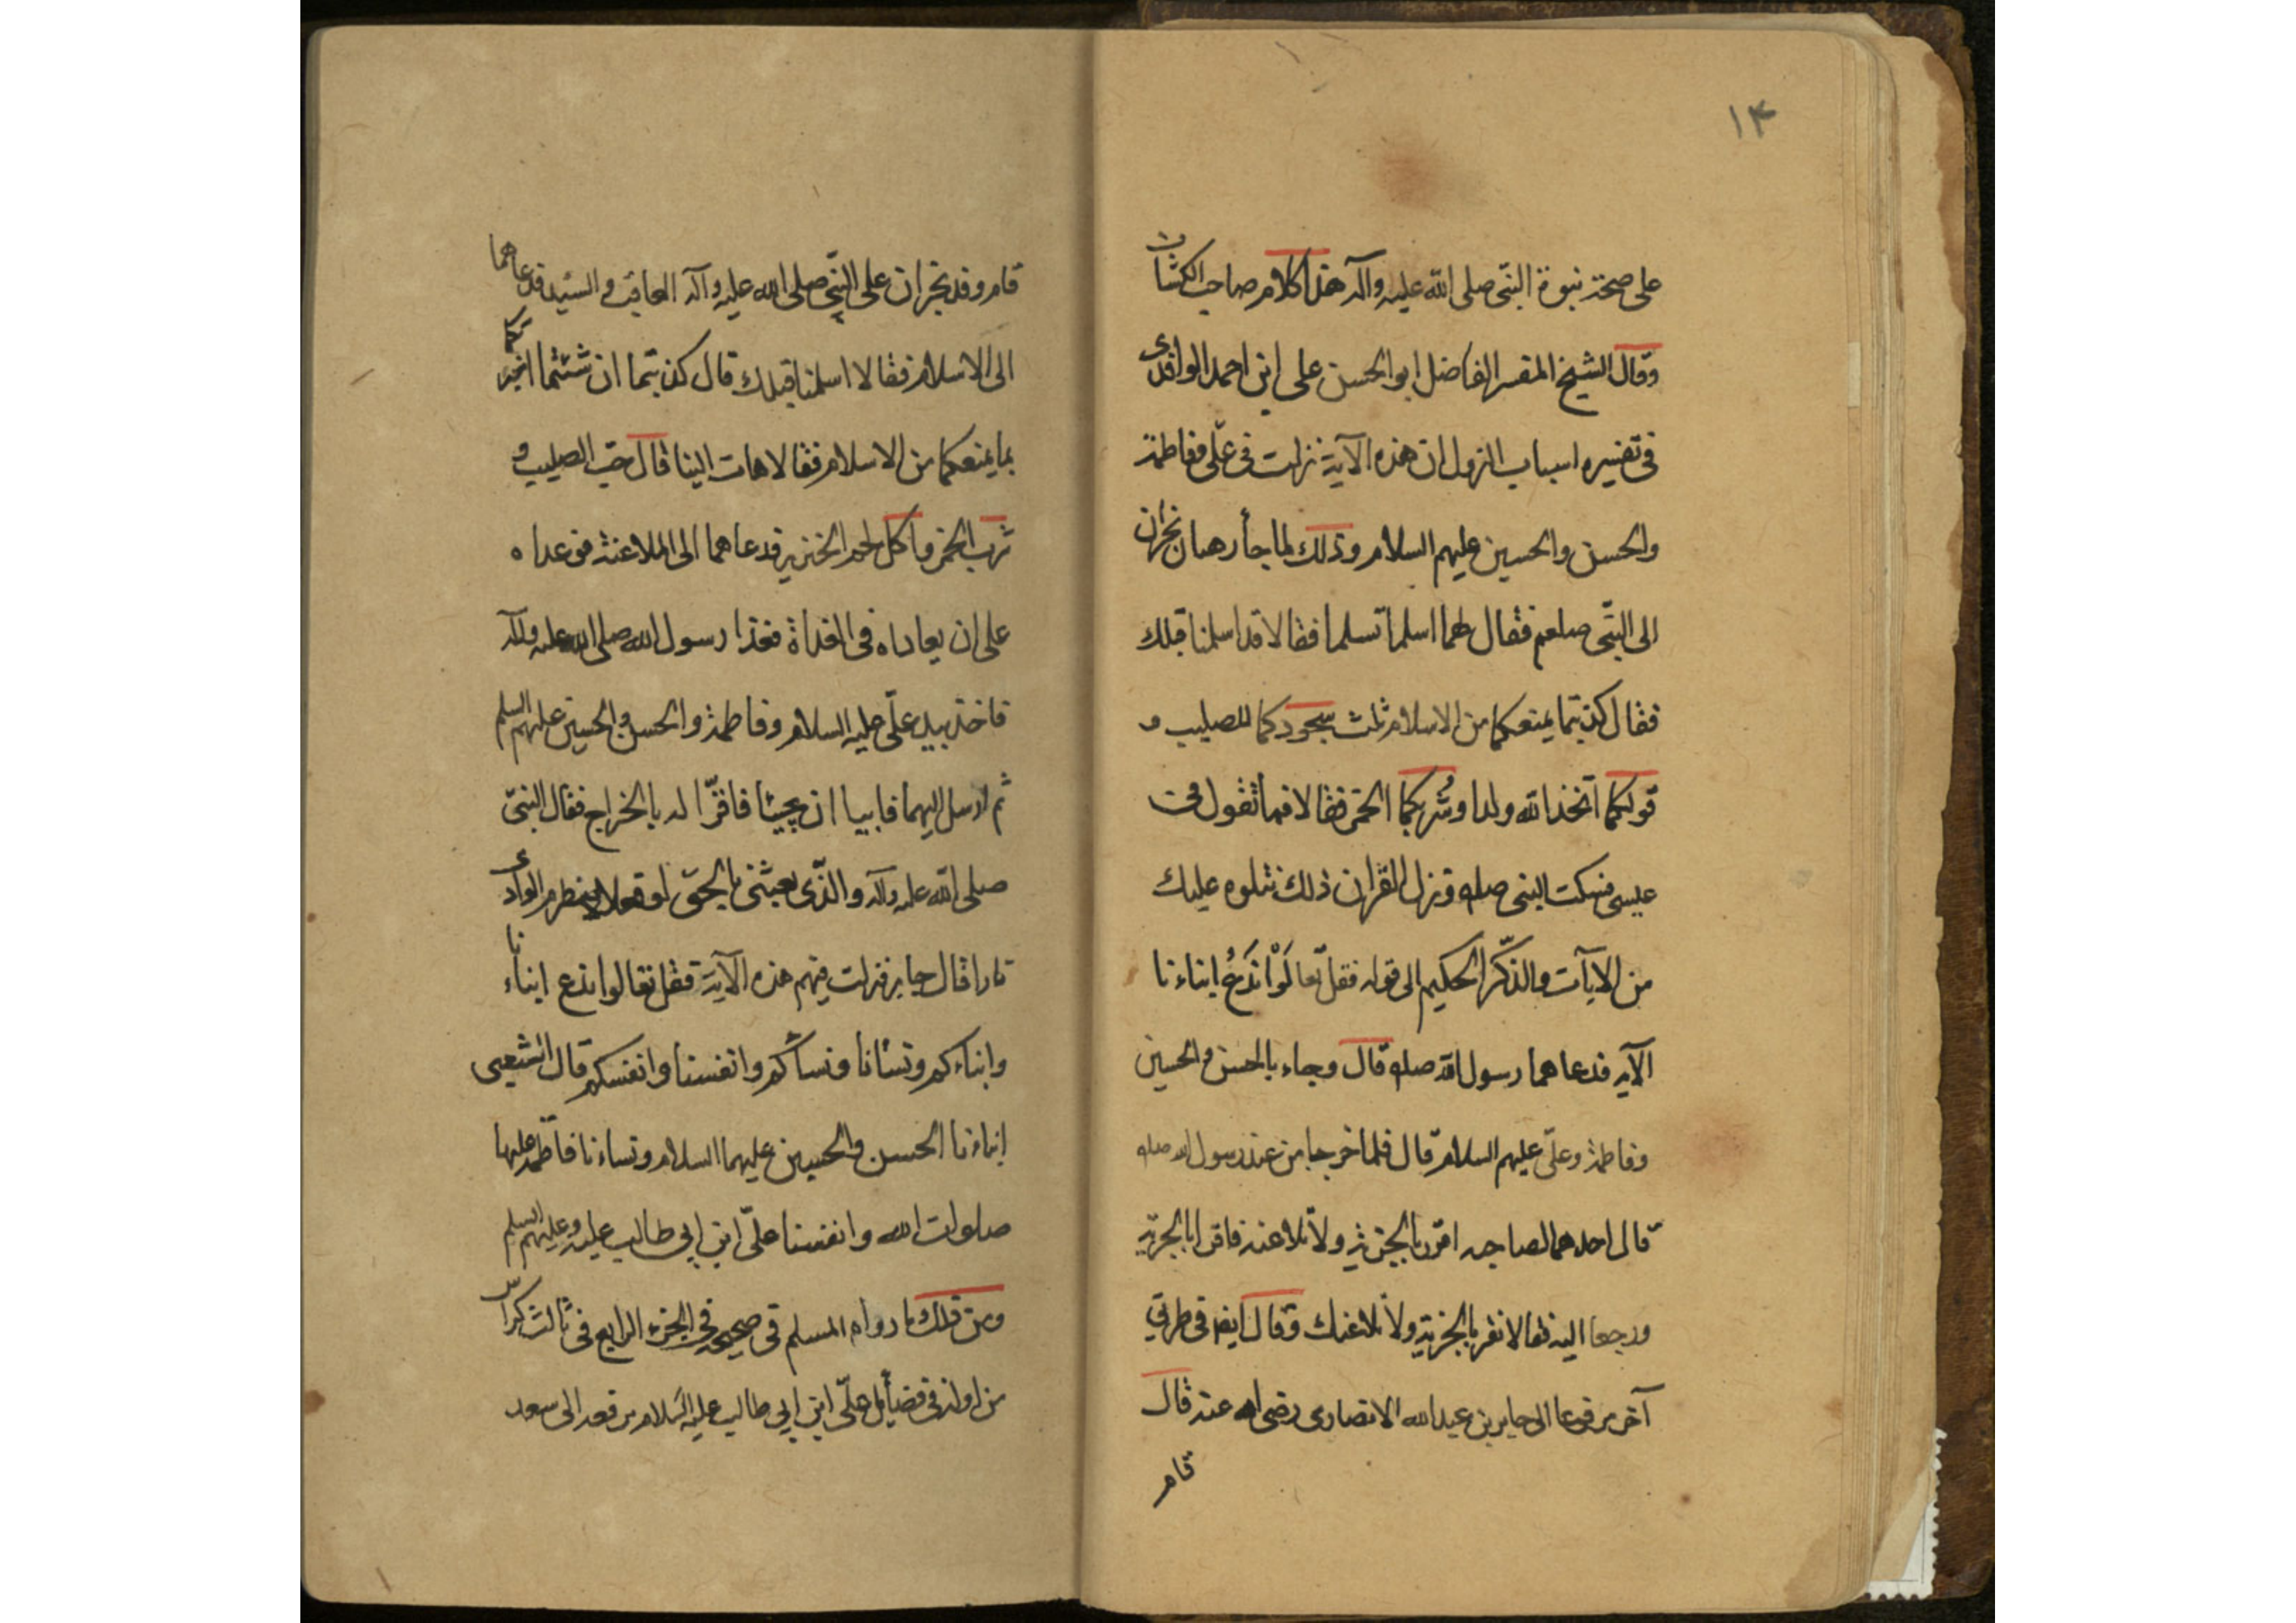 ١٤
على صحة نبوة النبى صلى الله عليه وآله هذا كلام صاحب الكشاف
وقال الشيخ المفسر الفاضل ابو الحسن على ابن احمد الواقدى
فى تفسيره اسباب النزول ان هذه الآية نزلت فى علّى وفاطمة
والحسن والحسين عليهم السلام وذلك لما جأ رهبان نجران
الى النبّى صلعم فقال لهما اسلما تسلما فقالا قد اسلمنا قبلك
فقال كذبتما يمنعكما من الاسلام ثلث سجودكما للصليب و
قولكما اتخذ الله ولدا وشُربكما الخمر فقالا فما تقول فى
عيسى فسكت النبى صله ونزل القران ذلك نتلوه عليك
من الايآت والذّكر الحكيم الى قوله فقل تعالَوْا نَدْعُ ابناءنا
الآيه فدعاهما رسول الله صله قال وجاء بالحسن والحسين
وفاطمة وعلّى عليهم السلام قال فلما خرجا من عند رسول الله صله
قال احدهما لصاحبه اقرر بالجزية ولا تلاعنه فاقرا بالجزية
ورجعا اليه فقالا نقر بالجزية ولا نلاعنك وقال ايضا فى طريق
آخر يرفعها الى جابر بن عبد الله الانصارى رضى الله عنه قال
قام
قام وفد نجران على النّبى صلى الله عليه وآله العاقب والسّيد فدعاهما
الى الاسلام فقالا اسلمنا قبلك قال كذبتما ان شئتما اخبرتكما
بما يمنعكما من الاسلام فقالا هات الينا قال حبّ الصليب و
شرب الخمر واكل لحم الخنزير فدعاهما الى الملاعنة فوعداه
على ان يعاداه فى الغداة فغدا رسول الله صلى الله عليه وآله
فاخذ بيد علّى عليه السلام وفاطمة والحسن والحسين عليهم السلم
ثم ارسل اليهما فابيا ان يجيئا فاقرّا له بالخراج فقال النبىّ
صلى الله عليه وآله والذّى بعثنى بالحقّ لو فعلا لامطر الوادى
نارا قال جابر فنزلت فيهم هذه الآية فقل تعالوا ندع ابناءنا
وابناءكم ونسأنا ونسأكم وانفسنا وانفسكم قال الشعبى
ابناءنا الحسن والحسين عليهما السلام ونساءنا فاطمه عليها
صلوات الله وانفسنا علّى ابن ابى طالب عليه وعليهم السلم
ومن ذلك ما رواه المسلم فى صحيحه فى الجزء الرابع فى ثالث كرّاس
من اوله فى فضايل علّى ابن ابى طالب عليه السّلام يرفعه الى سعد